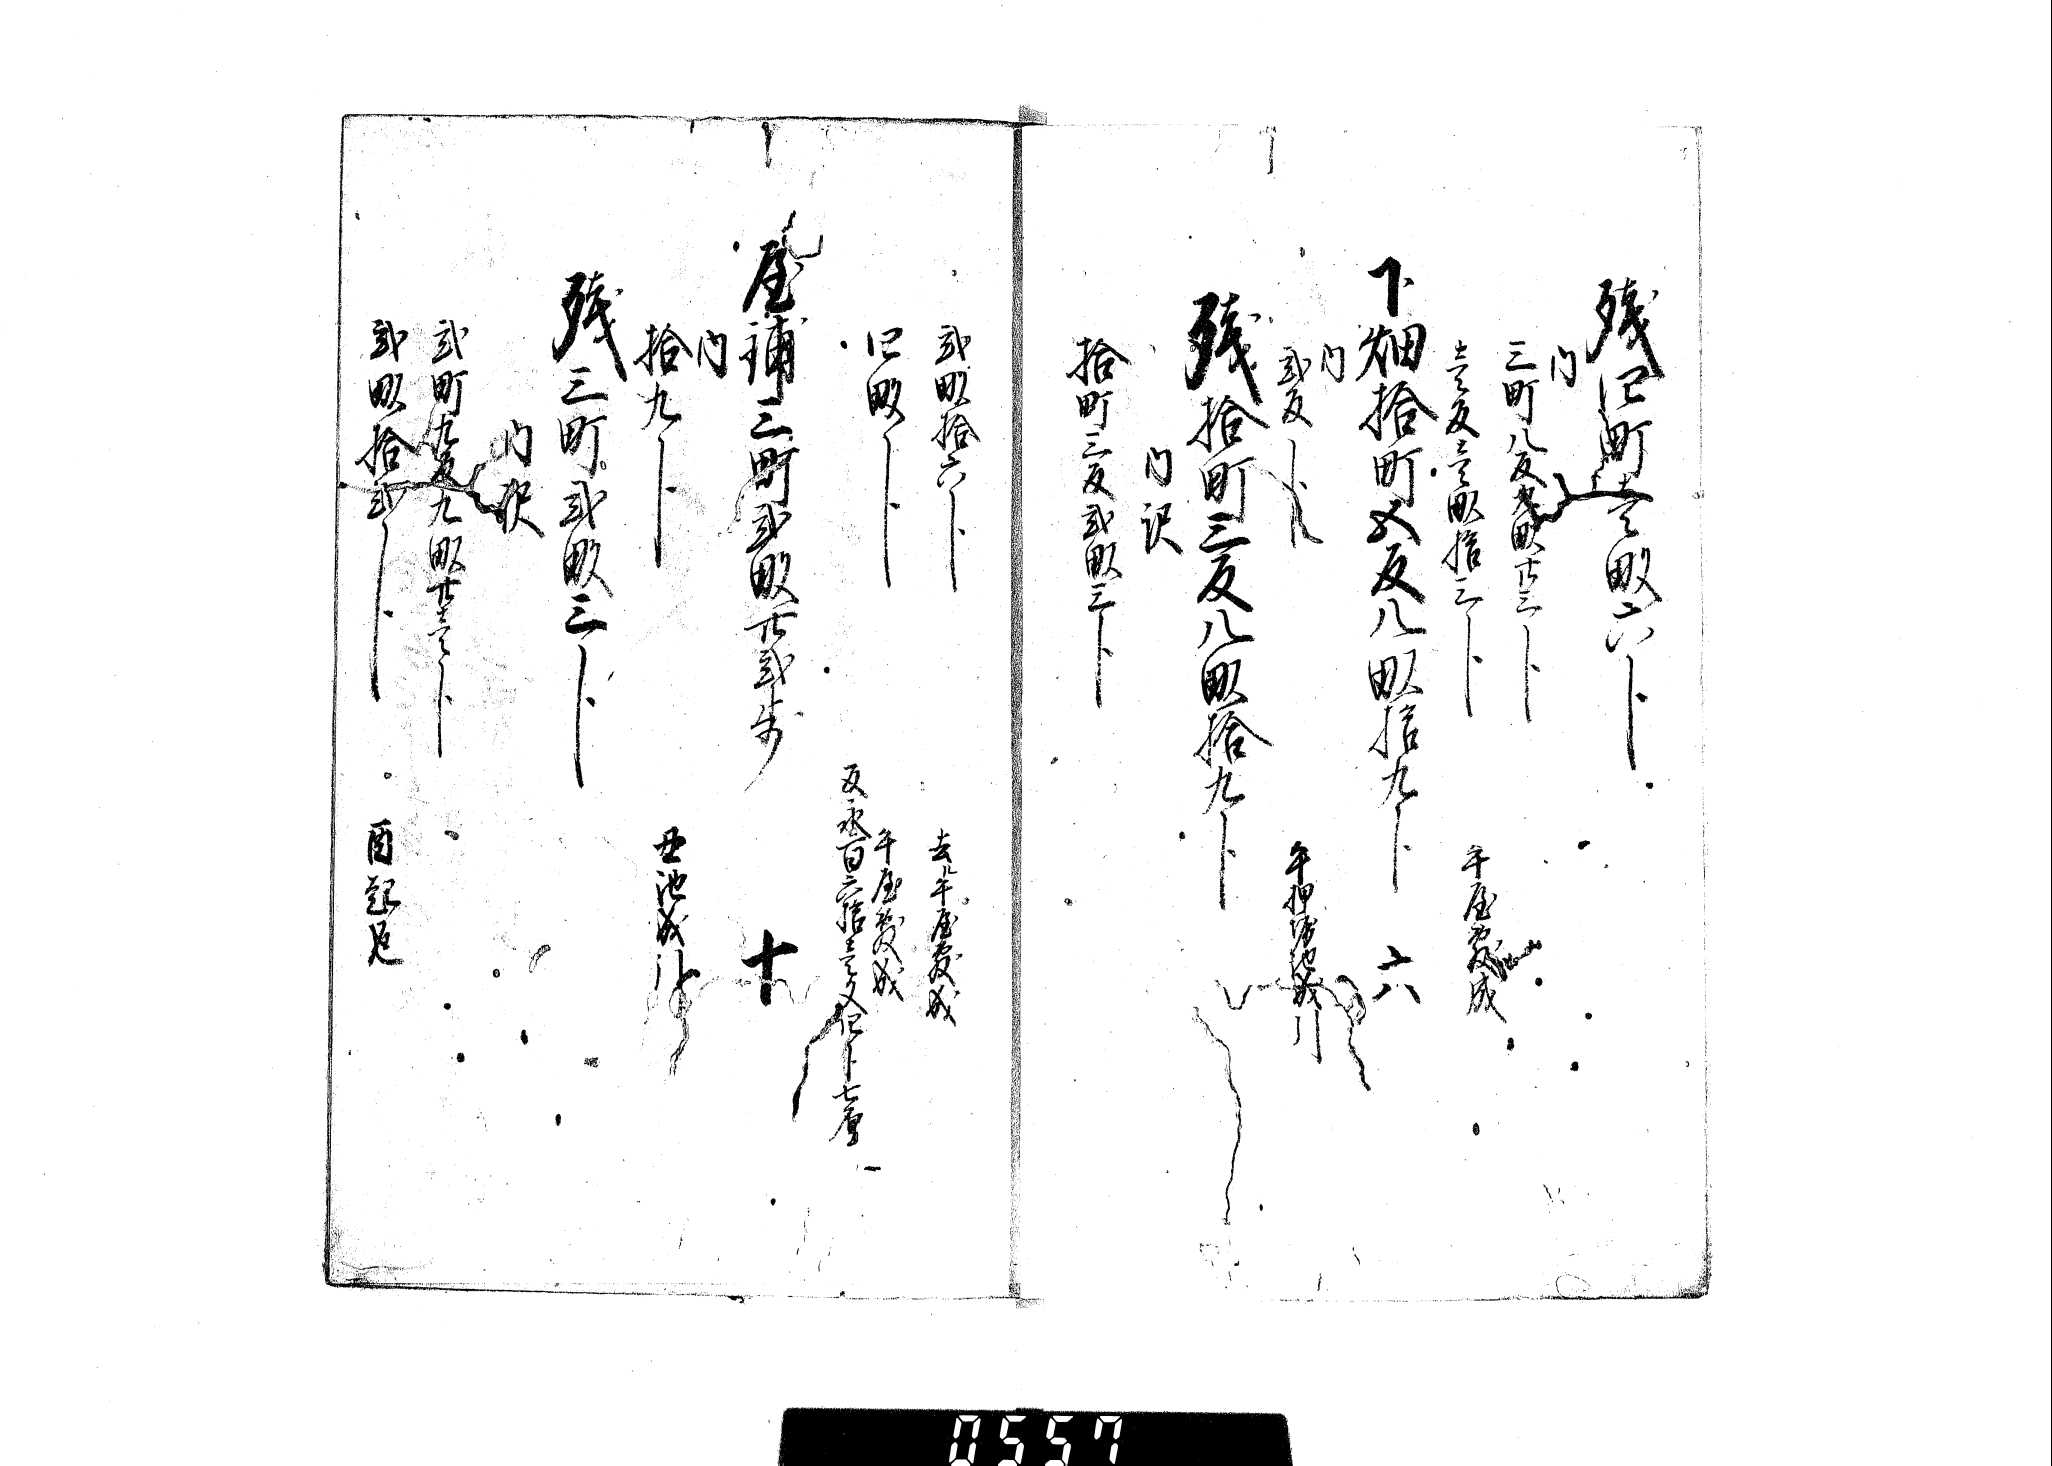 残四町壱畝六卜
内
三町八反九畝廿三卜
壱反壱畝拾三卜　午屋敷成
下畑拾町五反八畝拾九卜　六
内
弐反卜　午押堀池成引
残拾町三反八畝拾九卜
内訳
拾町三反弐畝三卜
弐畝拾六卜　去ル午屋敷成
四畝卜　午屋敷成
反永百六拾壱文四卜七厘
屋鋪三町弐畝廿弐歩　十
内
拾九卜　丑池成引
残三町弐畝三卜
内訳
弐町九反九畝廿壱卜
弐畝拾弐卜　酉起返
0557